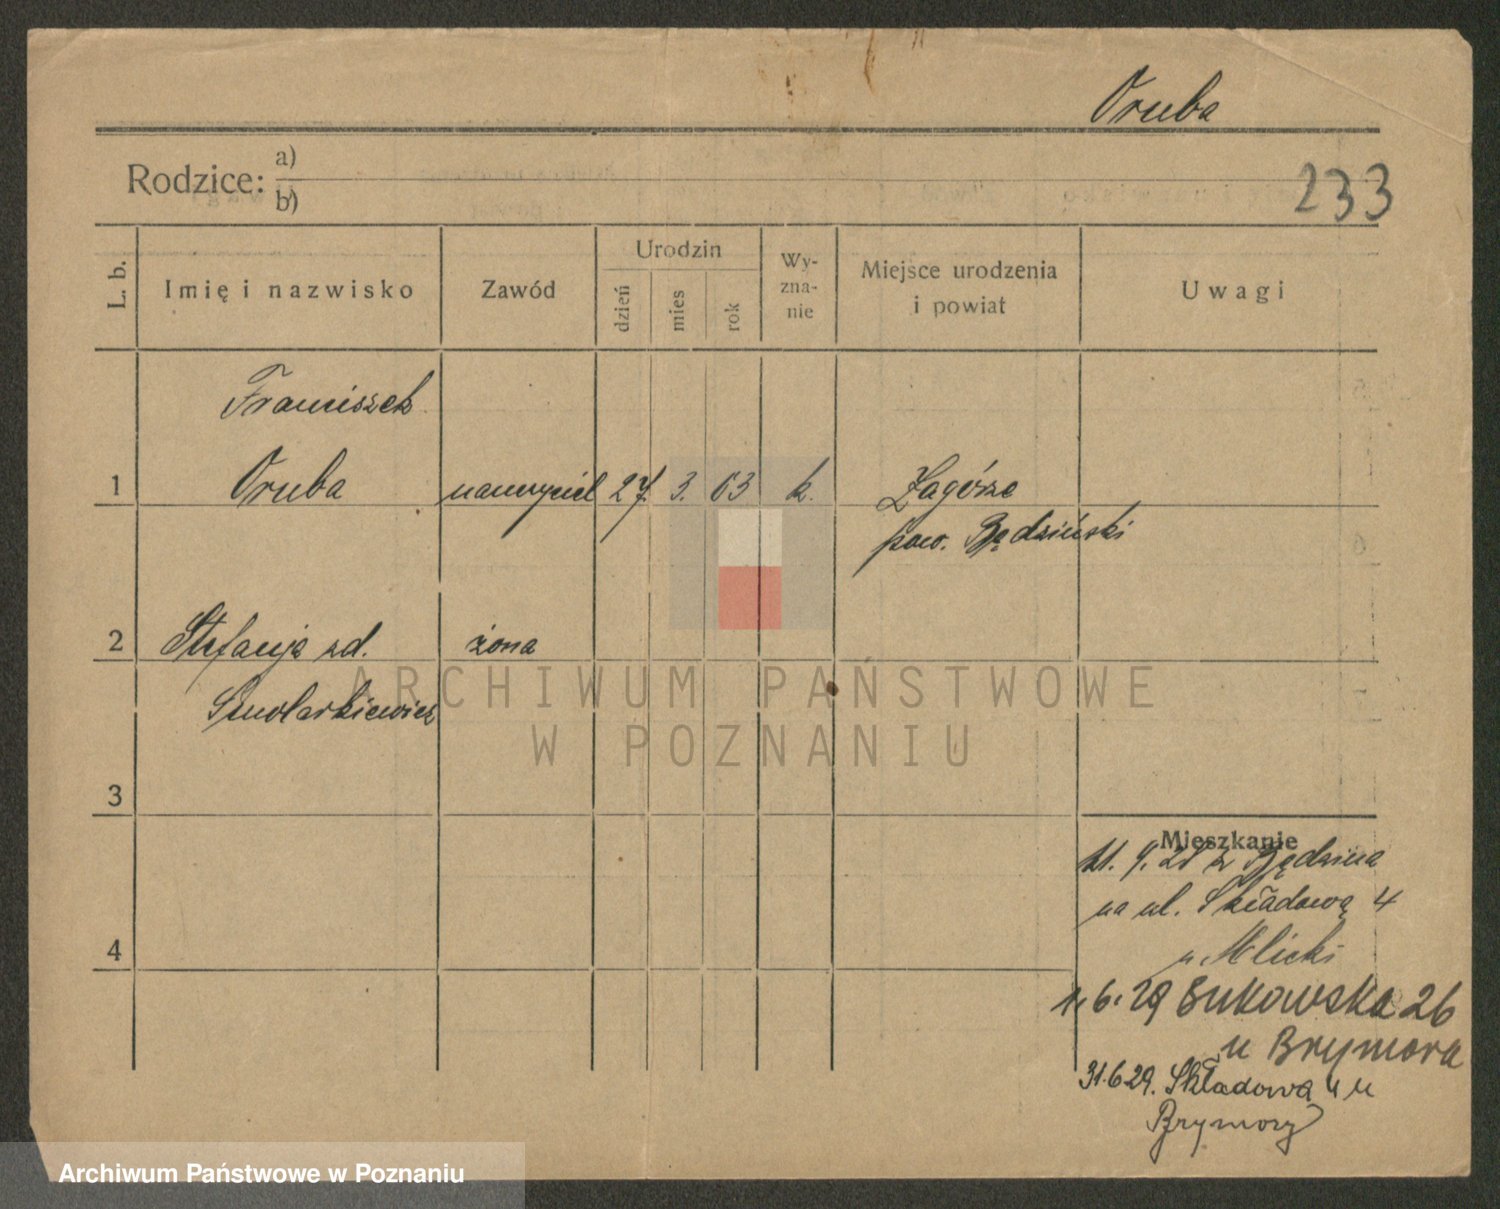 Oruba
Rodzice: a)
b)
233
L. b.
Imię i nazwisko
Zawód
Urodzin
dzień
mies
rok
Wy-
zna-
nie
Miejsce urodzenia
i powiat
Uwagi
Franciszek
1 Oruba nauczyciel 27. 3. 03 k. Zagórze
pow. Będziński
2 Stefanja zd. żona
Smolarkiewicz
3
4
Mieszkanie
9. z Będzina
na ul. Składową 4
u Mlicki
1. 6. 29 Bukowska 26
u Brymora
31.6 29. Składowa 4 u
Brymory
ARCHIWUM PAŃSTWOWE
W POZNANIU
Archiwum Państwowe w Poznaniu